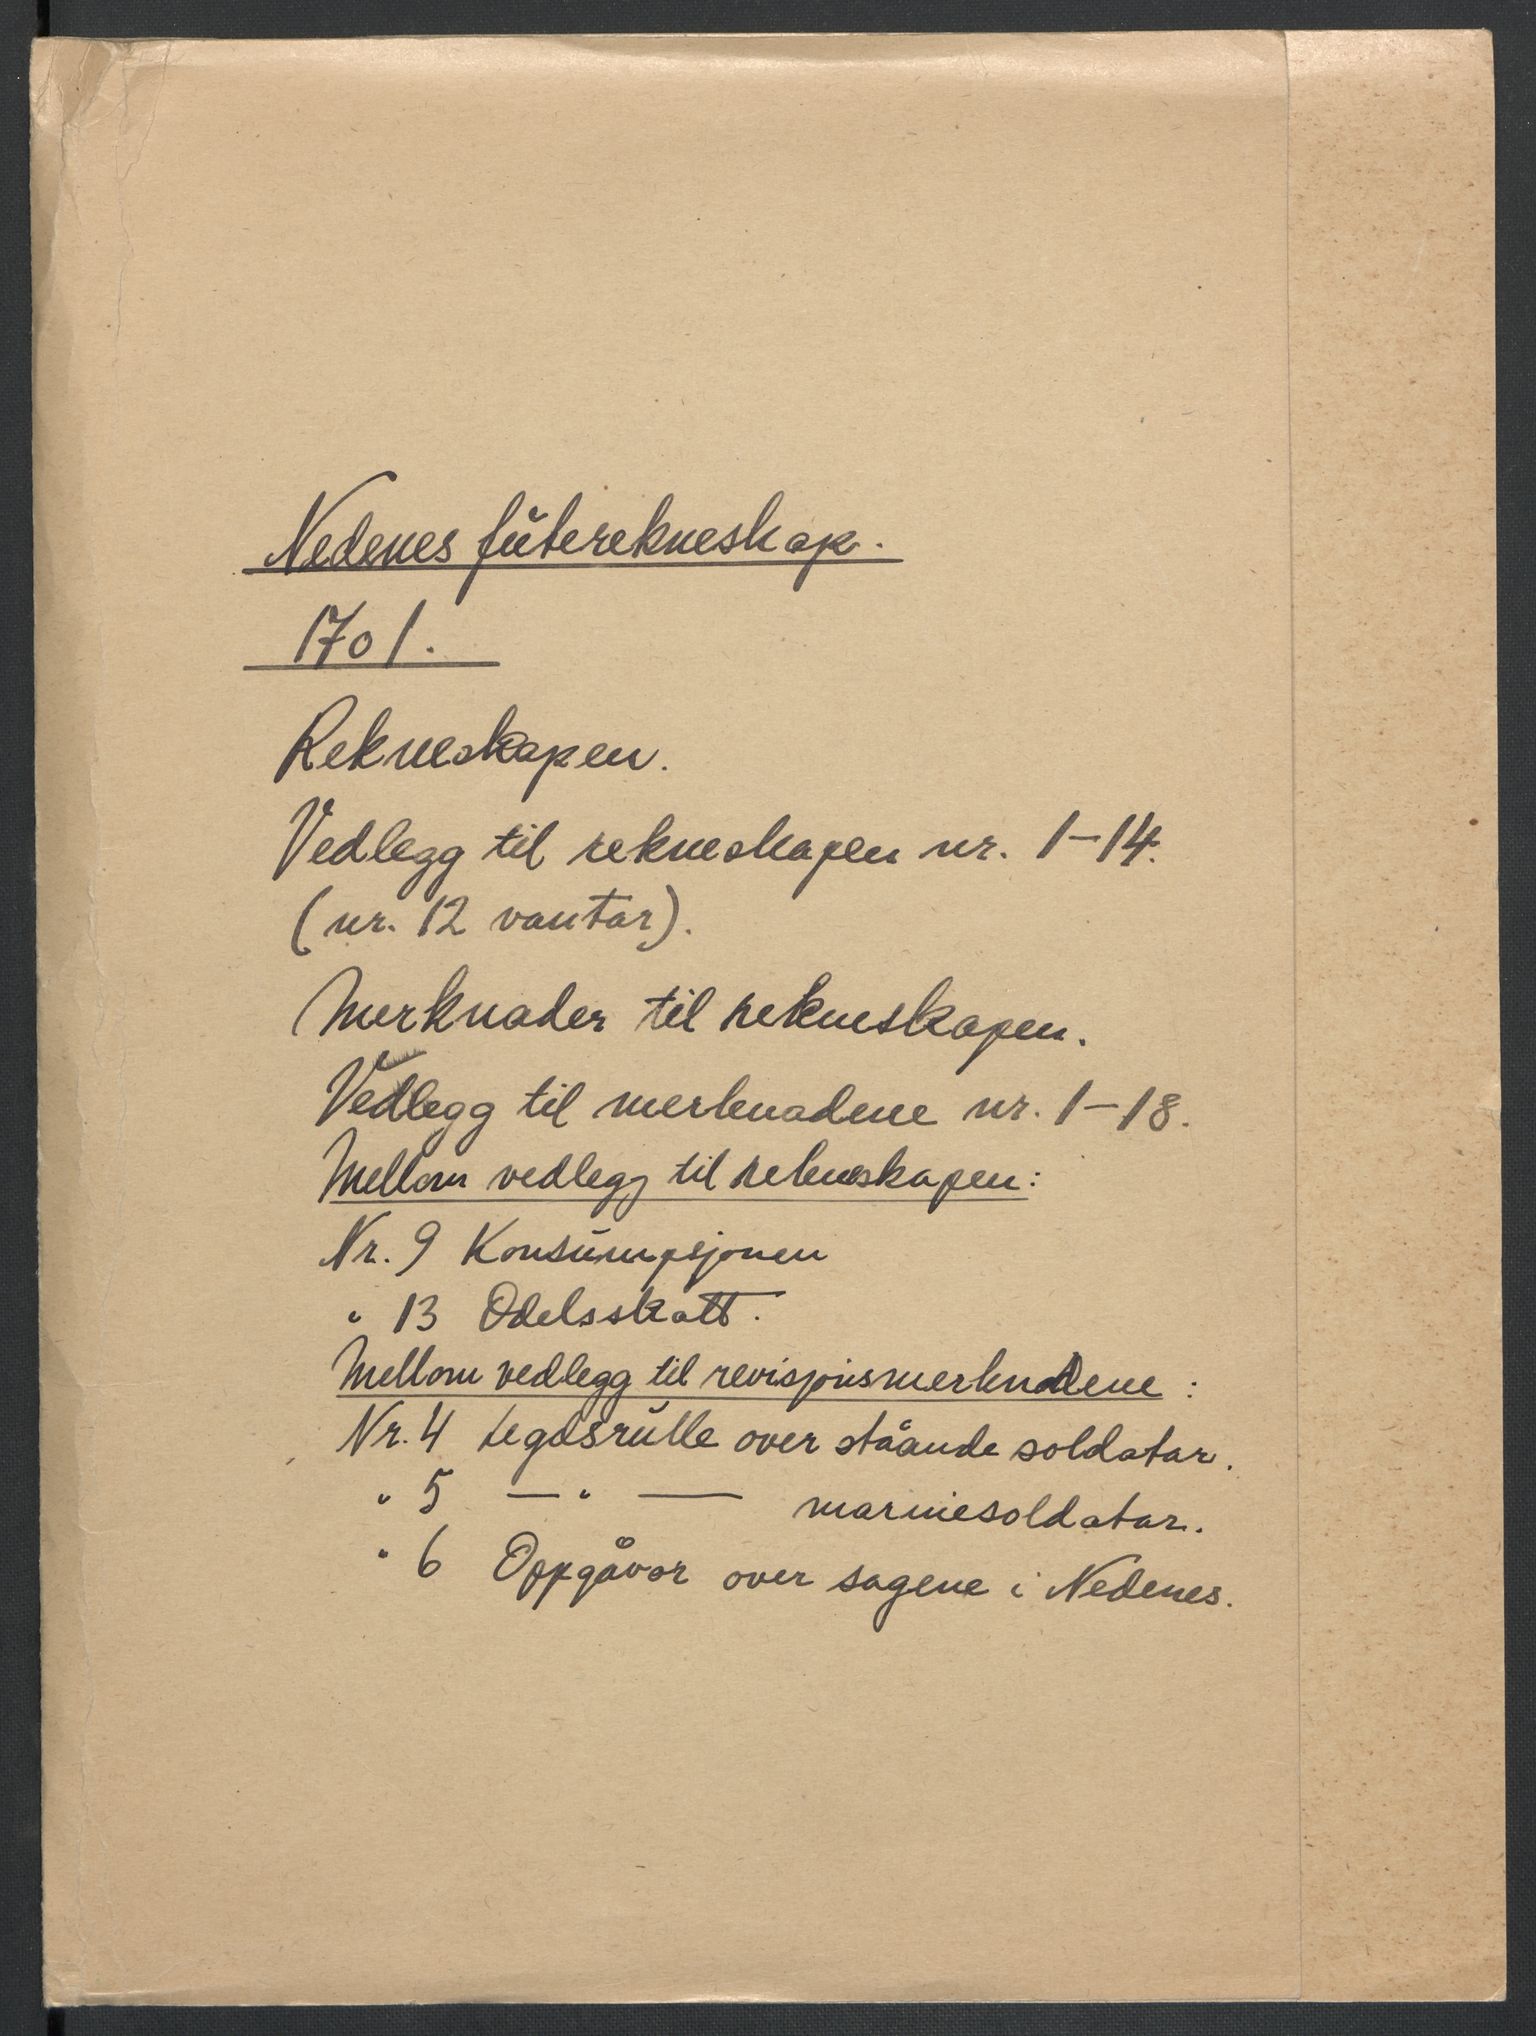 Nedenes futerekneskap.
1701.
Rekneskapen.
Vedlegg til rekneskapen nr. 1-14.
(nr. 12 vantar).
Merknader til rekneskapen.
Vedlegg til merknadene nr. 1-18.
Mellom vedlegg til rekneskapen:
Nr. 9 Konsumpsjonen
" 13 Odelsskatt.
Mellom vedlegg til revisjonsmerknadene:
Nr. 4 Legdsrulle over ståande soldatar.
" 5 — " — marinesoldatar.
" 6 Oppgåvor over sagene i Nedenes.